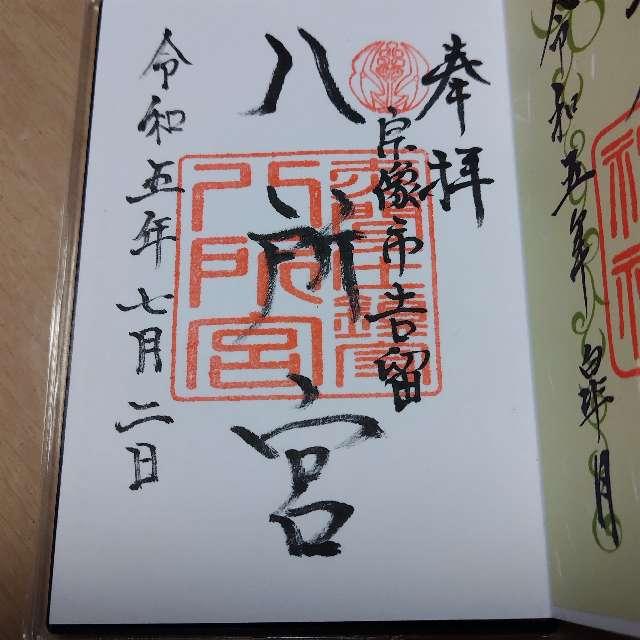 奉拝
宗像市吉留
八所宮
八所宮
令和五年七月二日
令和五年
月